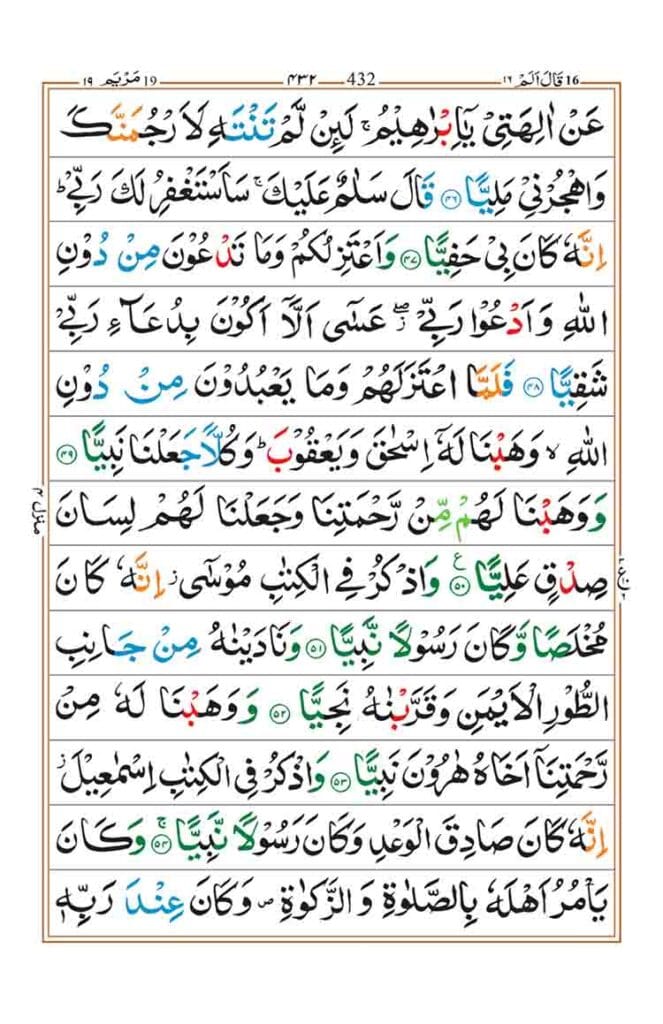 16 قَالَ اَلَمْ ١٦ 432 ٤٣٢ 19 مَرْيَم ١٩
عَنْ اٰلِهَتِيْ يٰۤاِبْرٰهِيْمُ ۚ لَىِٕنْ لَّمْ تَنْتَهِ لَاَرْجُمَنَّكَ
وَاهْجُرْنِيْ مَلِيًّا ﴿٤٦﴾ قَالَ سَلٰمٌ عَلَيْكَ ۚ سَاَسْتَغْفِرُ لَكَ رَبِّيْ ؕ
اِنَّهٗ كَانَ بِيْ حَفِيًّا ﴿٤٧﴾ وَاَعْتَزِلُكُمْ وَمَا تَدْعُوْنَ مِنْ دُوْنِ
اللّٰهِ وَاَدْعُوْا رَبِّيْ ۖ ز عَسٰۤى اَلَّاۤ اَكُوْنَ بِدُعَآءِ رَبِّيْ
شَقِيًّا ﴿٤٨﴾ فَلَمَّا اعْتَزَلَهُمْ وَمَا يَعْبُدُوْنَ مِنْ دُوْنِ
اللّٰهِ ۙ وَهَبْنَا لَهٗۤ اِسْحٰقَ وَيَعْقُوْبَ ؕ وَكُلًّا جَعَلْنَا نَبِيًّا ﴿٤٩﴾
وَوَهَبْنَا لَهُمْ مِّنْ رَّحْمَتِنَا وَجَعَلْنَا لَهُمْ لِسَانَ
صِدْقٍ عَلِيًّا ﴿٥٠﴾ ع وَاذْكُرْ فِي الْكِتٰبِ مُوْسٰۤى ز اِنَّهٗ كَانَ
مُخْلَصًا وَّكَانَ رَسُوْلًا نَّبِيًّا ﴿٥١﴾ وَنَادَيْنٰهُ مِنْ جَانِبِ
الطُّوْرِ الْاَيْمَنِ وَقَرَّبْنٰهُ نَجِيًّا ﴿٥٢﴾ وَوَهَبْنَا لَهٗ مِنْ
رَّحْمَتِنَاۤ اَخَاهُ هٰرُوْنَ نَبِيًّا ﴿٥٣﴾ وَاذْكُرْ فِي الْكِتٰبِ اِسْمٰعِيْلَ ز
اِنَّهٗ كَانَ صَادِقَ الْوَعْدِ وَكَانَ رَسُوْلًا نَّبِيًّا ﴿٥٤﴾ ۚ وَكَانَ
يَاْمُرُ اَهْلَهٗ بِالصَّلٰوةِ وَالزَّكٰوةِ ص وَكَانَ عِنْدَ رَبِّهٖ
منزل ٤